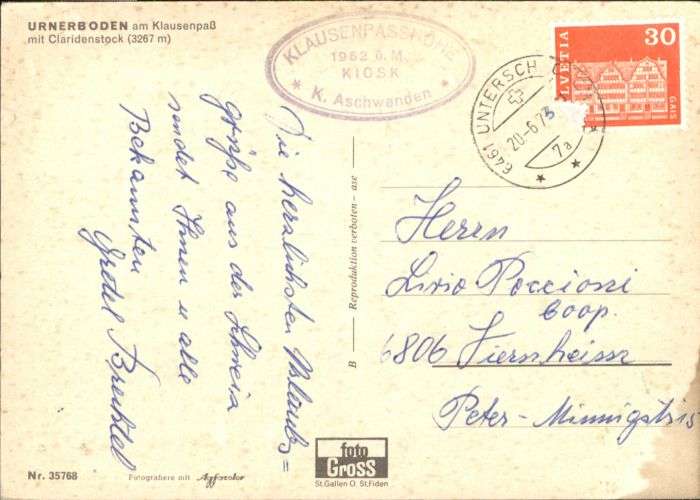 URNERBODEN am Klausenpaß
mit Claridenstock (3267 m)
KLAUSENPASSHÖHE
1952 ü.M.
KIOSK
* K. Aschwanden *
HELVETIA
30
GAIS
6461 UNTERSCH
20-6.73
7a
Die herzlichsten Urlaubs=
grüße aus der Schweiz
sendet Ihnen u alle
Bekannten
Gretel
B — Reproduktion verboten — ase —
Herrn
Livio Poccioni
Coop.
6806 Viernheim
Peter-Minnig
foto
Gross
St.Gallen O. St.Fiden
Nr. 35768
Fotografiere mit Agfacolor